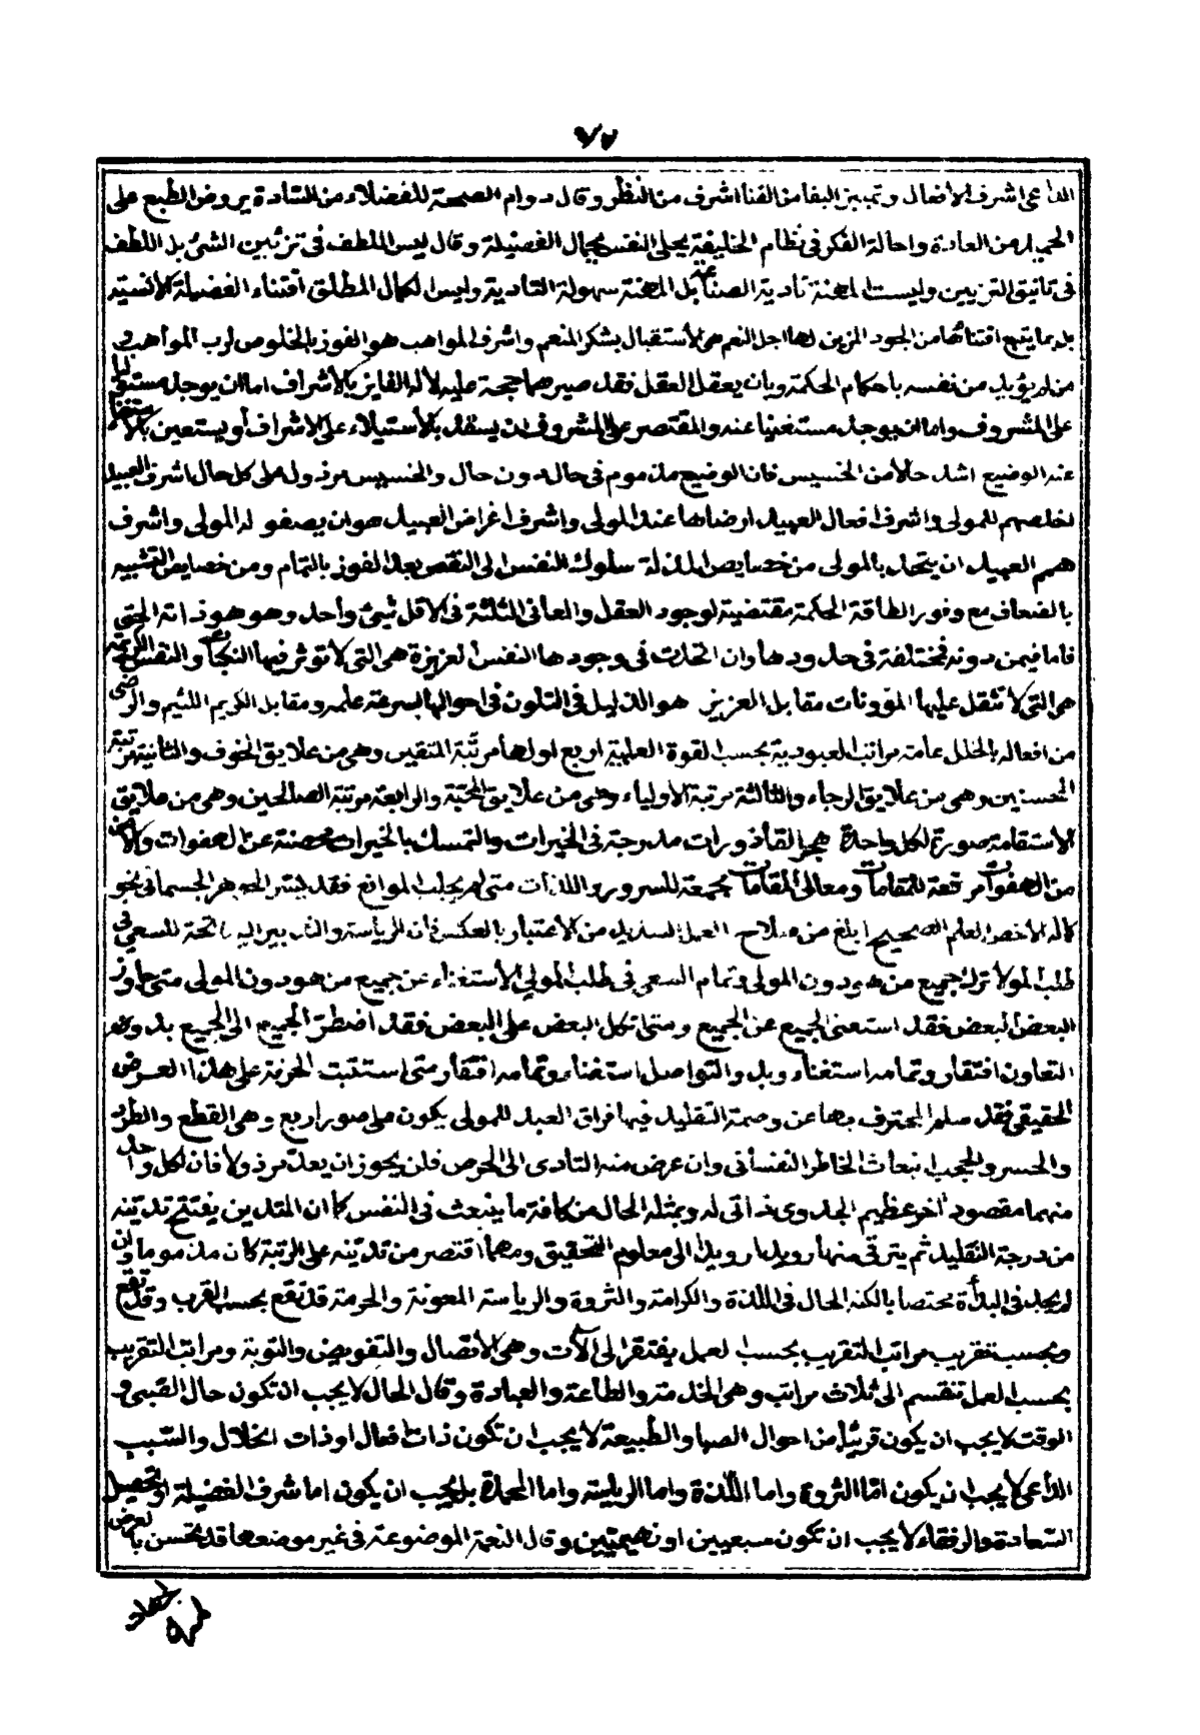 الداعى اشرف الافعال وتميز البقا من الفنا اشرف من النظر وقال دوام الصحة للفضلاء من السادة يروض الطبع على
من العادة واحالة الفكر فى نظام الخليقة يحلى النفس بجمال الفضيلة وقال ليس اللطف فى تزئين الشئ بل اللطف
فى تانيق التزيين وليست المهنة تأدية الصناعة بل المهنة سهولة التادية وليس الكمال المطلق اقتناء الفضيلة الانسية
بل بما يتبع اقتنائها من الجود المزين لها اجل النعم هى الاستقبال بشكر المنعم واشرف المواهب هو الفوز بالخلوص لرب المواهب و
من لم يؤيد من نفسه باحكام الحكمة وبان يعقل العقل فقد صيرهما حجة عليه لا له الفايز بالأشراف اما ان يوجد مستقلا
على المشروف واما ان يوجد مستغنيا عنه والمقتصر على المشروف لن يستقل بالأستيلاء على الاشراف أو يستعين
عند الوضيع اشد حالا من الخسيس فان الوضيع مذموم فى حال دون حال والخسيس مرذول على كل حال اشرف العبيد
اخلصهم للمولى واشرف افعال العبيد ارضاها عند المولى واشرف اغراض العبيد هو ان يصفو له المولى واشرف
همم العبيد ان يتحد بالمولى من خصايص المذلة سلوك النفس الى النقص بعد الفوز بالتمام ومن خصايص التشبيه
بالضعاف مع وفور الطاقة الحكمة مقتضية لوجود العقل والمعانى الثلثة فى الاقل شئ وأحد وهو هو ذاته الحق
فاما فيمن دونه فمختلفة فى حدودها وان اتحدت فى وجودها النفس العزيزة هى التى لا توثر فيها النكبات والنفس الكريمة
هى التى لا تثقل عليها المؤونات مقابل العزيز هو الذليل فى التلون فى احوالها بسرعة علمه ومقابل الكريم اللئيم والرضى
من افعاله بالخلل عامة مراتب العبودية بحسب القوة العلمية اربع اولها مرتبة المتقين وهى من علايق الخوف والثانية مرتبة
المحسنين وهى من علايق الرجاء والثالثة مرتبة الاولياء وهى من علايق المحبة والرابعة مرتبة الصالحين وهى من علايق
الاستقامة صورة لكل واحدة هجر القأذورات مدرجة فى الخيرات والتمسك بالخيرات محصنة عن الهفوات
من الهفوات مرقعة للمقامات ومعالى المقامات مجمعة للسرور واللذات متى لم يجلب الموانع فقد الجوهر الجسمانى نحو
كاله الاخص العلم الصحيح ابلغ من صلاح العمل السديد من الاعتبار بالعكس فان الرئاسة للسعى فى
طلب المولا ترك جميع من هو دون المولى وتمام السعى فى طلب المولى الأستغناء عن جميع من هو دون المولى متى جاوز
البعض البعض فقد استغنى الجميع عن الجميع ومتى اتكل البعض على البعض فقد اضطر الجميع الى الجميع
التعاون افتقار وتمامه استغناء وبدء التواصل استغناء وتمامه افتقار متى استتبت الحرية على هذا العرض
الحقيقى فقد سلم المحترف بها عن وصمة التقليد فيها فراق العبد للمولى يكون على صور اربع وهى القطع والطرد
والخسر والحجب انبعاث الخاطر النفسانى وان عرض منه التادى الى الحرص فلن يجوز ان يعد مرذولا فان لكل واحد
منهما مقصود أخر عظيم الجدوى ذاتى له وبمثله الحال من كافة ما ينبعث فى النفس كما ان المتدين يفتتح تدينه
من درجة التقليد ثم يترقى منها رويدا رويدا الى معلوم التحقيق ومهما اقتصر من تدينه على الرتبة كان مذموما وان
لم يحل فى البدأة مختصا بالكنه الحال فى اللذة والكرامة والثروة والرياسة المعونة والحرمة قد تقع بحسب القرب وقد تقع
وبحسب تقريب مراتب التقريب بحسب العمل يفتقر الى الآت وهى الاتصال والتفويض والتوبة ومراتب التقريب
بحسب العمل تنقسم الى ثلاث مراتب وهى الخدمة والطاعة والعبادة وقال الحال لا يجب ان تكون حال القبى و
الوقت لا يجب ان يكون قريبا من احوال الصبا والطبيعة لا يجب ان تكون ذات افعال او ذات اخلال والسبب
الداعى لا يجب ان يكون امّا الثروة واما اللذة واما الرياسة واما المحمدة بل يجب ان يكون اما شرف الفضيلة او تحصيل
السعادة والرفقاء لا يجب ان تكون سبعيين او بهيميين وقال النعمة الموضوعة فى غير موضعها قد تحسن بالعرض